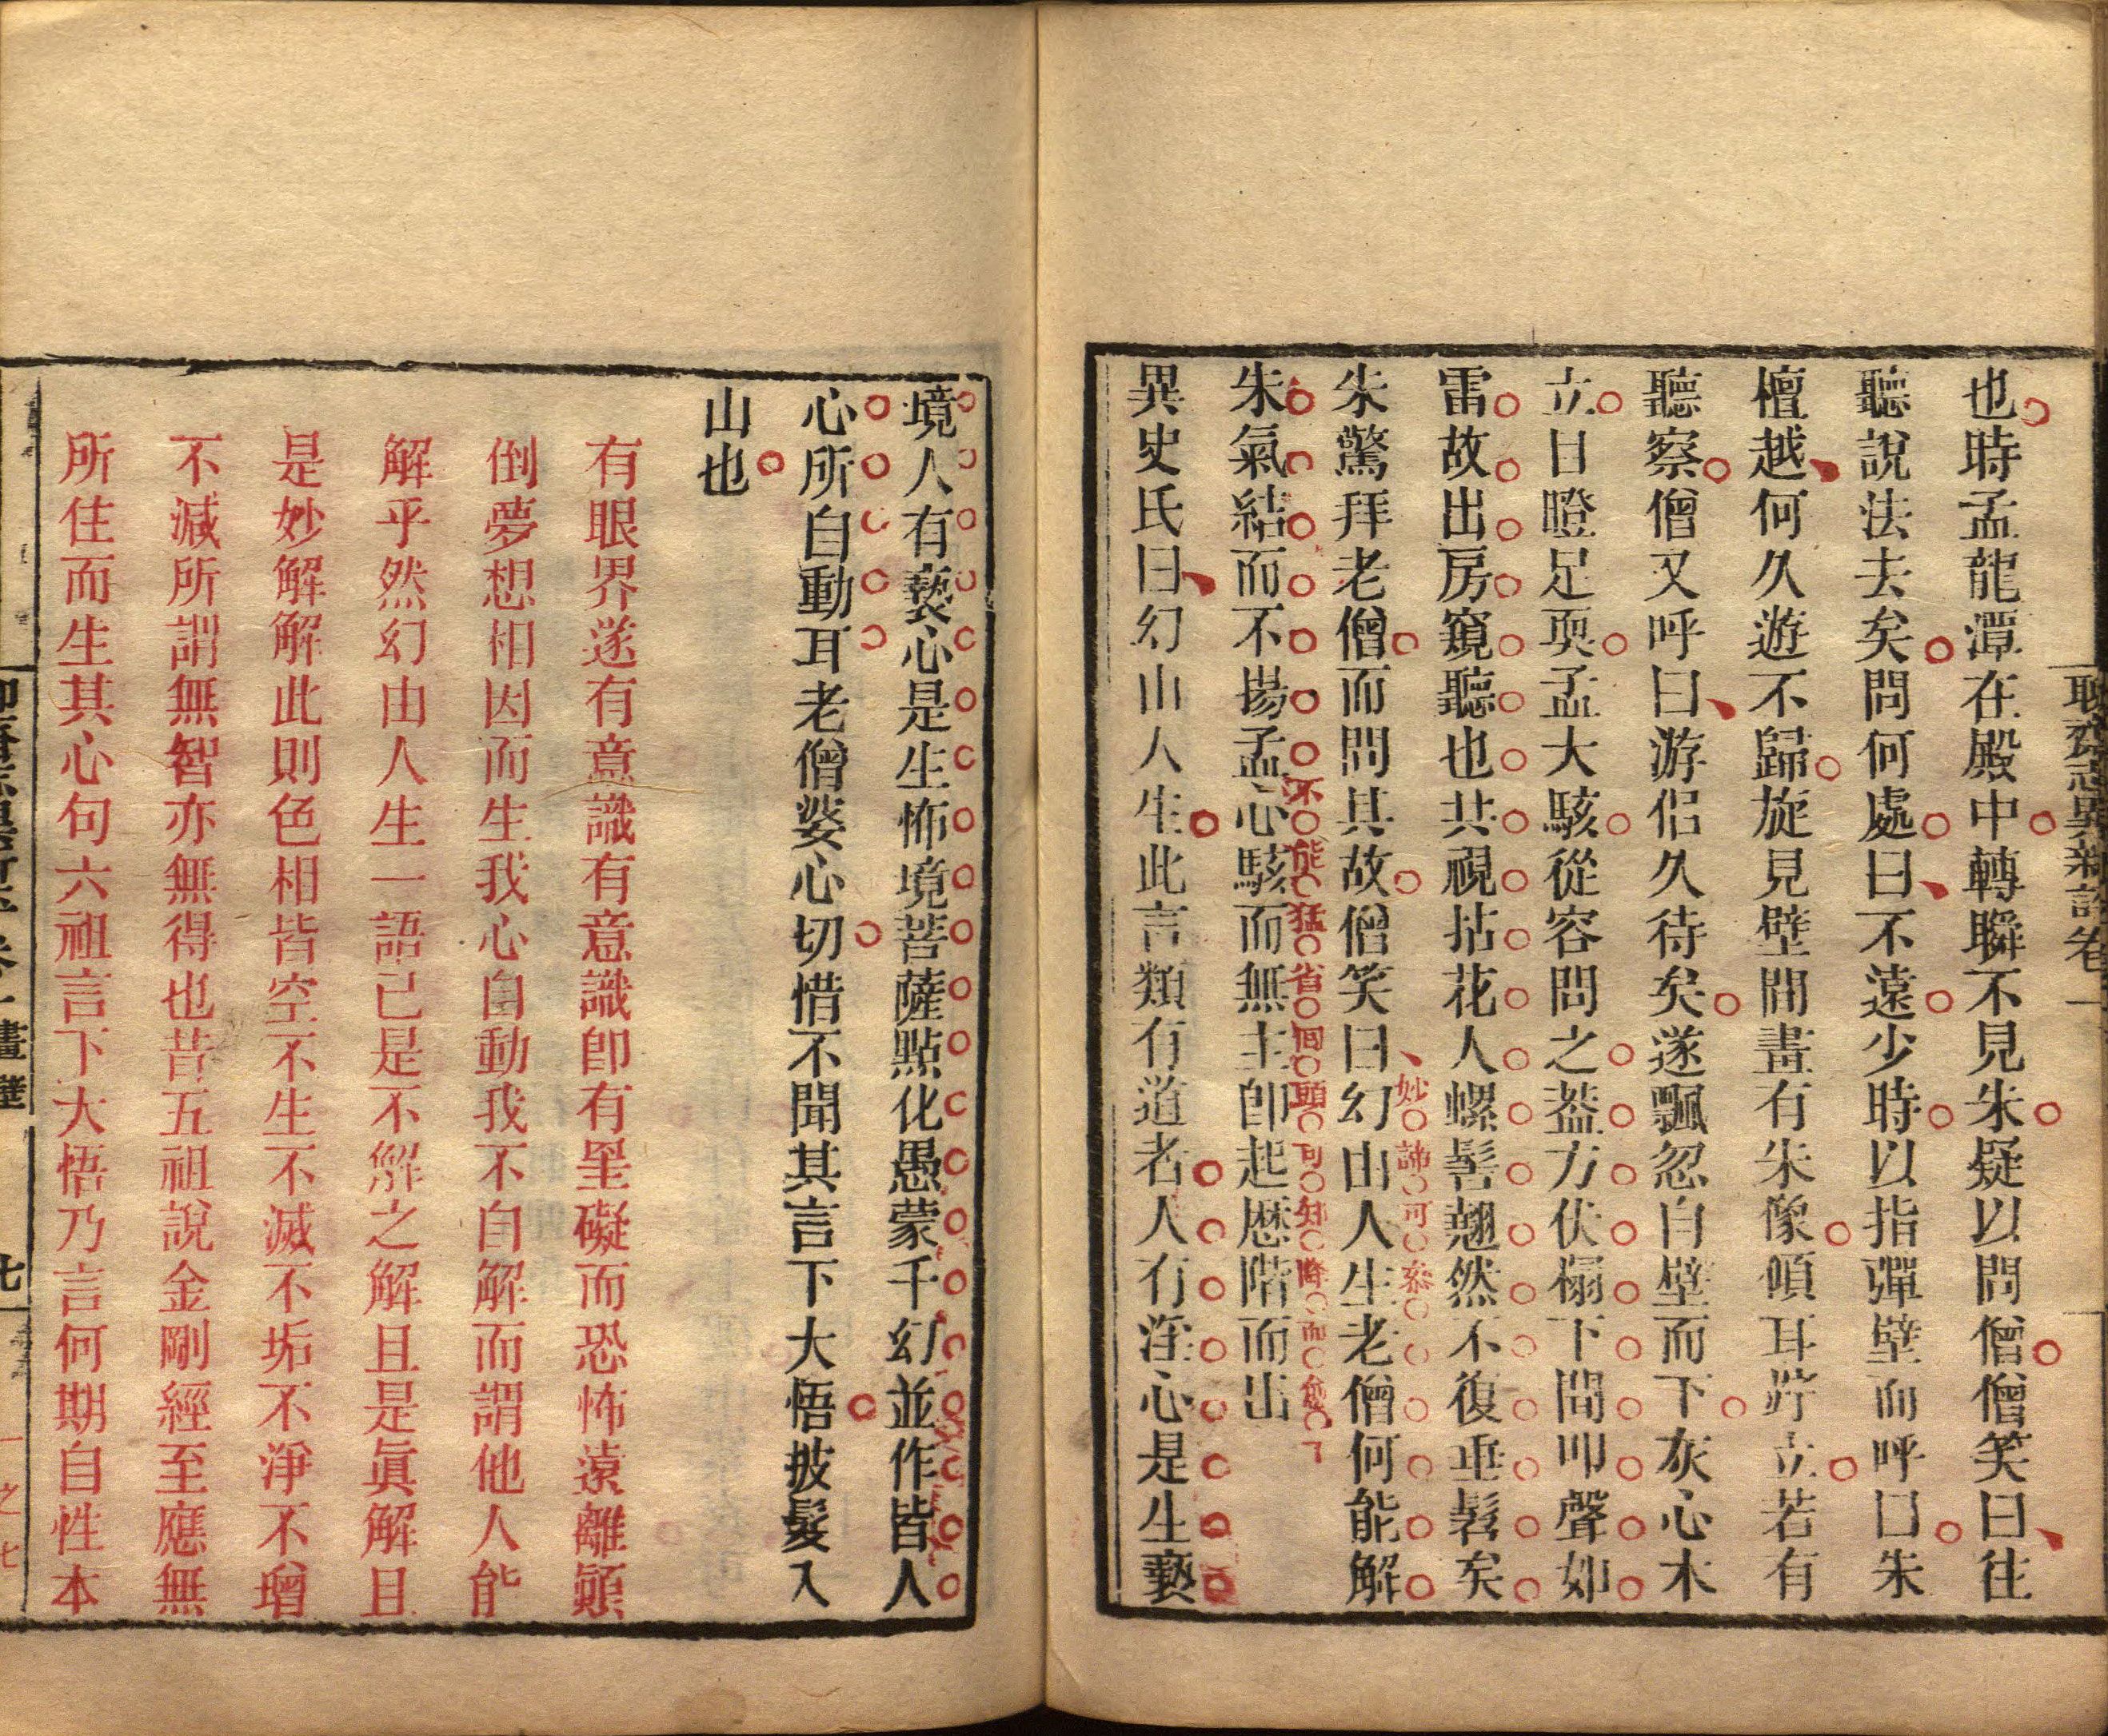 聊齋志異新評卷一
也時孟龍潭在殿中轉瞬不見朱疑以問僧僧笑曰往
聽說法去矣問何處曰不遠少時以指彈壁而呼曰朱
檀越何久遊不歸旋見壁間畫有朱像傾耳竚立若有
聽察僧又呼曰游侣久待矣遂飄忽自壁而下灰心木
立目瞪足耎孟大駭從容問之葢方伏榻下聞叩聲如
雷故出房窺聽也共視拈花人螺髻翹然不復垂髫矣
朱驚拜老僧而問其故僧笑曰幻由人生老僧何能解
妙諦可參
朱氣結而不揚孟心駭而無主即起歷階而出
不能猛省回頭可知
異史氏曰幻由人生此言類有道者人有淫心是生褻
境人有褻心是生怖境菩薩點化愚蒙千幻並作皆人
心所自動耳老僧婆心切惜不聞其言下大悟披髮入
山也
有眼界遂有意識有意識卽有罣礙而恐怖遠離顚
倒夢想相因而生我心自動我不自解而謂他人能
解乎然幻由人生一語已是不解之解且是眞解且
是妙解解此則色相皆空不生不滅不垢不淨不增
不減所謂無智亦無得也昔五祖說金剛經至應無
所住而生其心句六祖言下大悟乃言何期自性本
畫壁
七
一之七